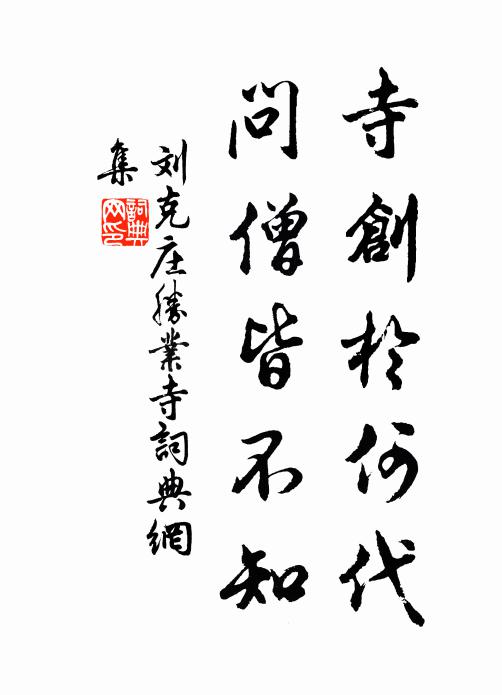 寺創於何代
問僧皆不知
刘克庄勝業寺詞典網
集
詞典
网印